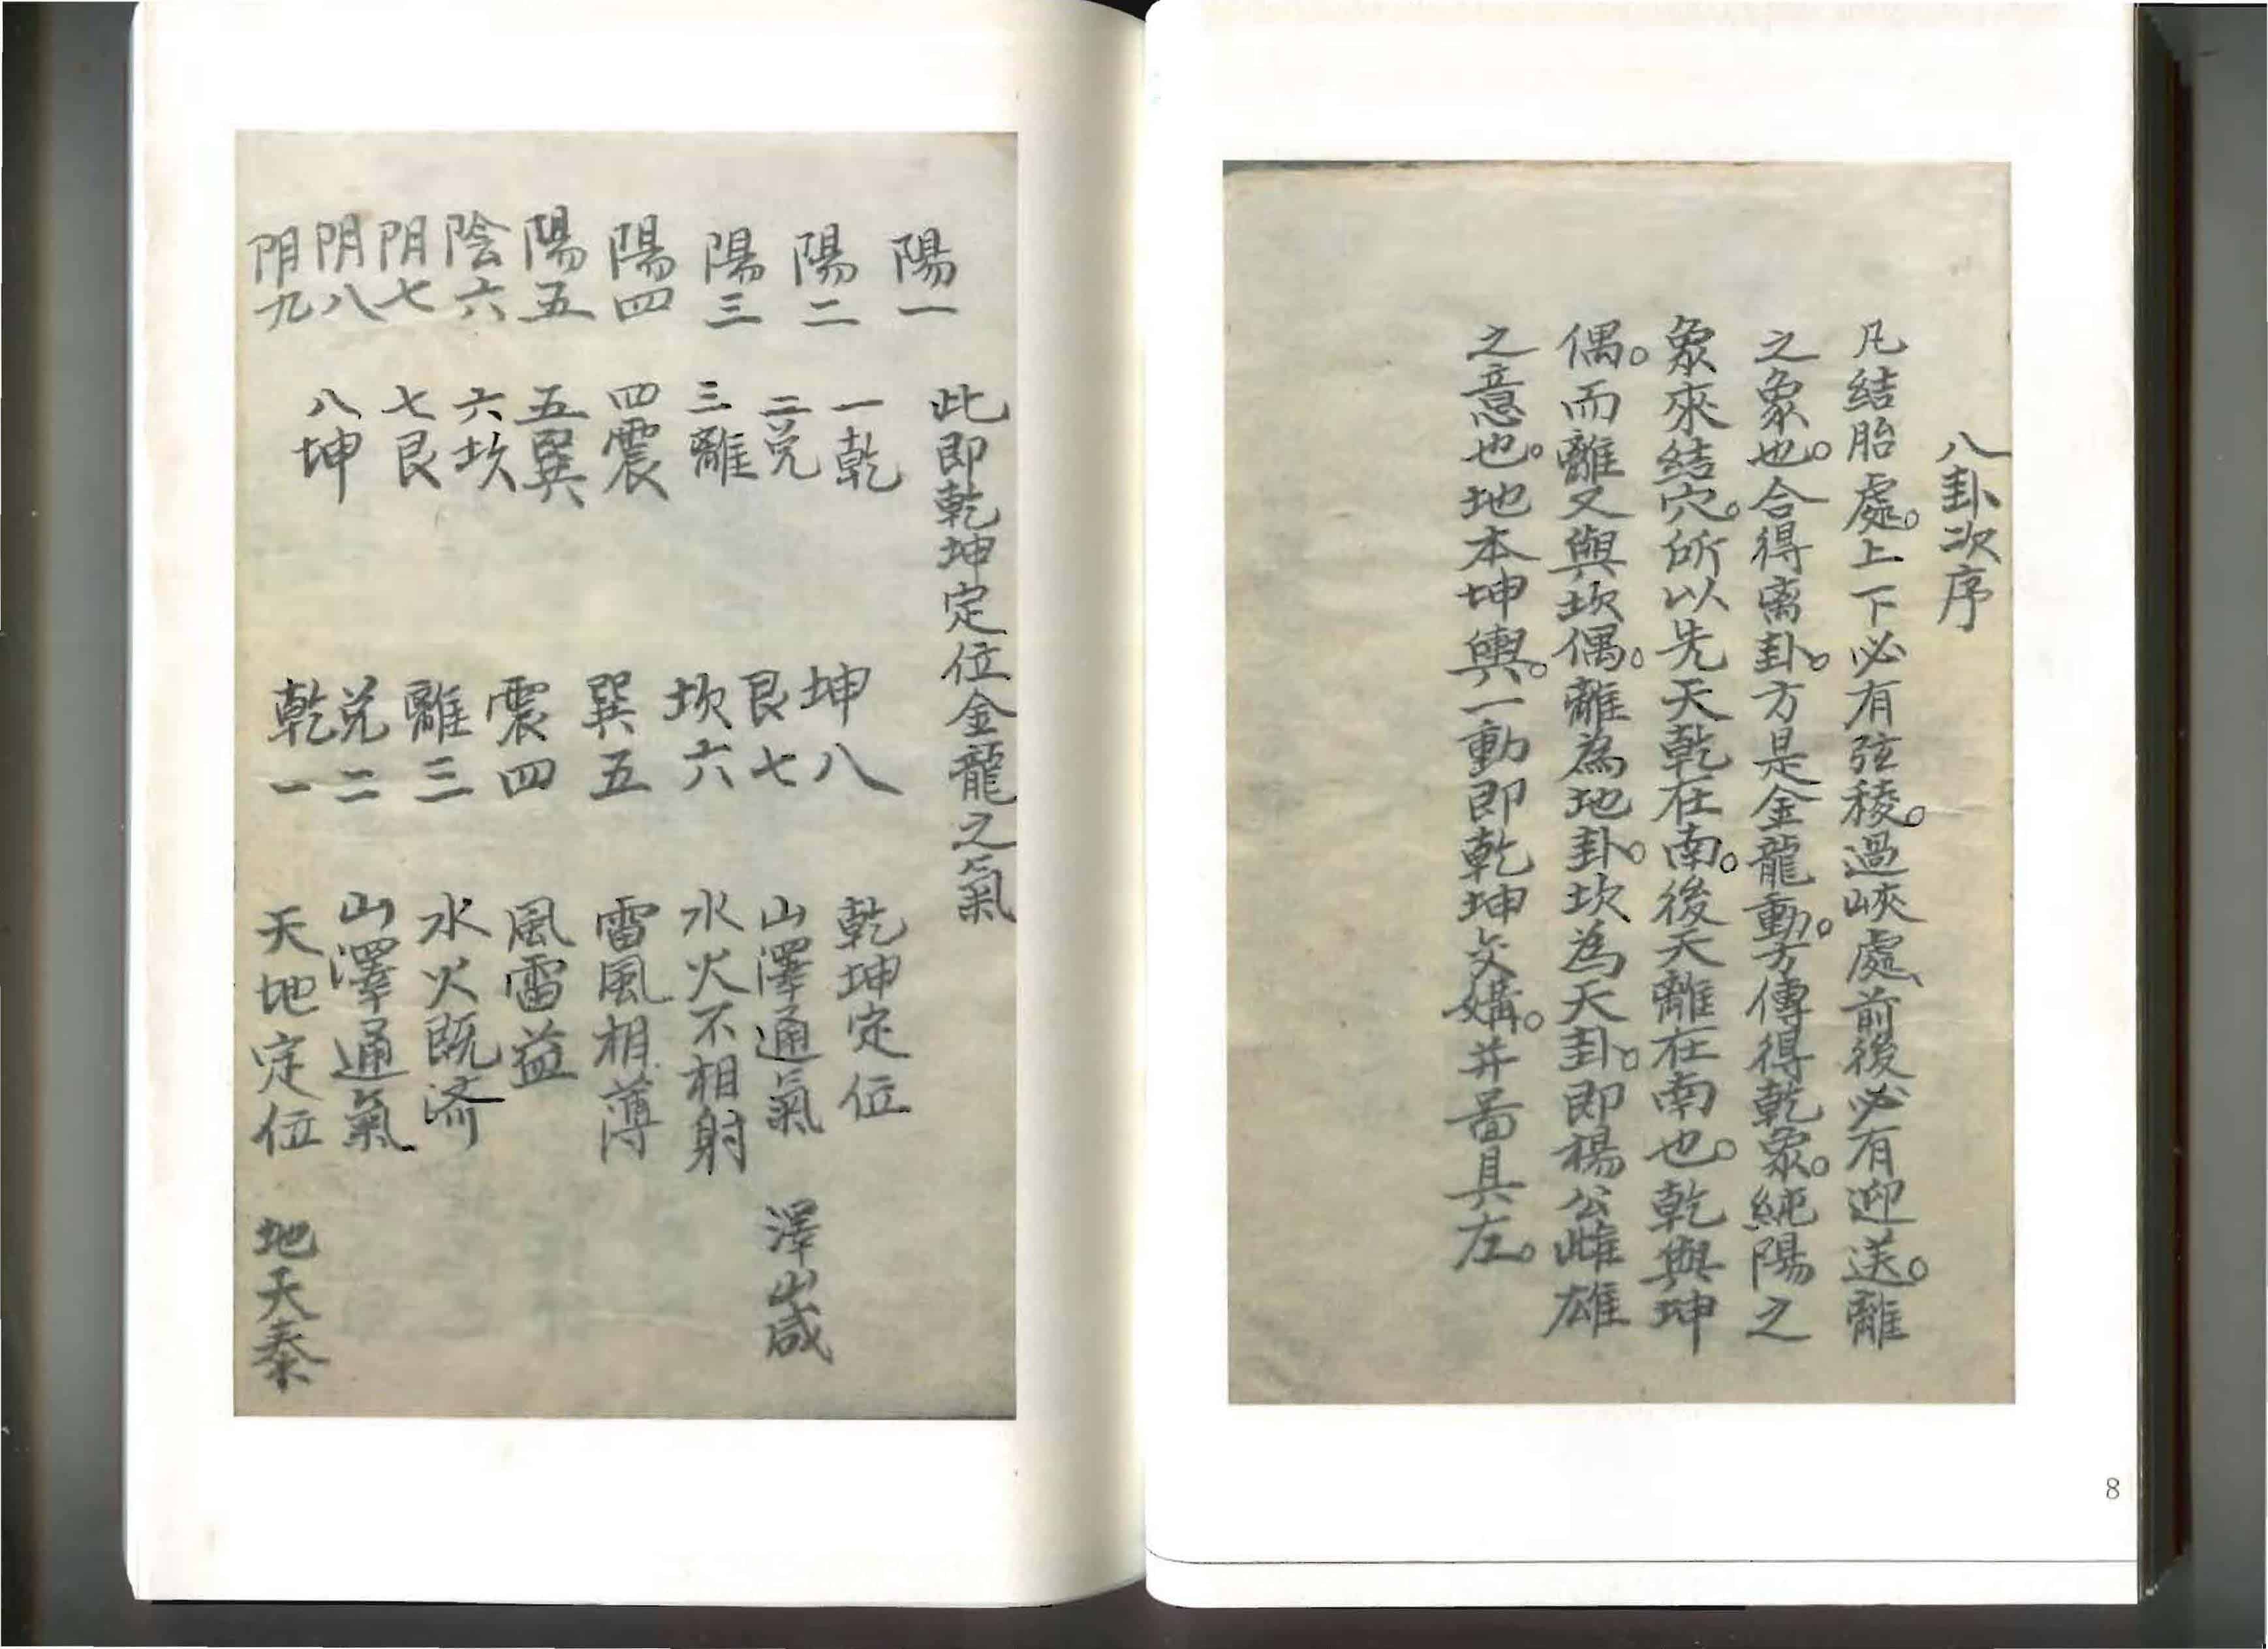 八卦次序
凡结胎處。上下必有弦稜。過峽處、前後必有迎送。離
之象也。合得离卦。方是金龍動。方傳得乾象。純陽之
象來结穴。所以先天乾在南。後天離在南也。乾與坤
偶。而離又與坎偶。離為地卦。坎為天卦。即楊公雌雄
之意也。地本坤輿。一動即乾坤交媾。并啚具左。
8
陽一
陽二
陽三
陽四
陽五
陰六
阴七
阴八
阴九
此即乾坤定位金龍之氣
一乾
二兑
三離
四震
五巽
六坎
七艮
八坤
坤八
艮七
坎六
巽五
震四
離三
兑二
乾一
乾坤定位
山澤通氣 澤山咸
水火不相射
雷風相薄
風雷益
水火既济
山澤通氣
天地定位 地天泰